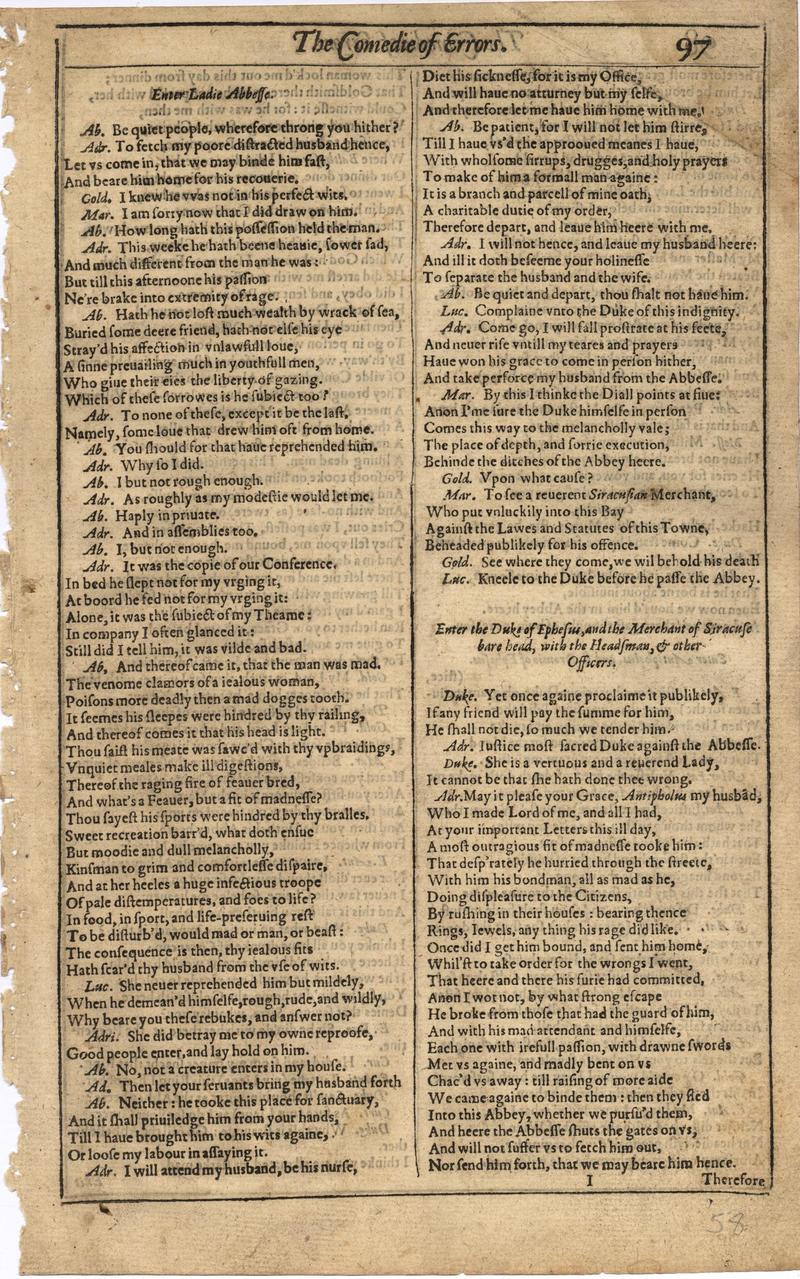 The Comedie of Errors. 97
Enter Ladie Abbesse.
Ab. Be quiet people, wherefore throng you hither?
Adr. To fetch my poore distracted husband hence,
Let vs come in, that we may binde him fast,
And beare him home for his recouerie.
Gold. I knew he vvas not in his perfect wits.
Mar. I am sorry now that I did draw on him.
Ab. How long hath this possession held the man.
Adr. This weeke he hath beene heauie, sower sad,
And much different from the man he was:
But till this afternoone his passion
Ne're brake into extremity of rage.
Ab. Hath he not lost much wealth by wrack of sea,
Buried some deere friend, hath not else his eye
Stray'd his affection in vnlawfull loue,
A sinne preuailing much in youthfull men,
Who giue their eies the liberty of gazing.
Which of these sorrowes is he subiect too?
Adr. To none of these, except it be the last,
Namely, some loue that drew him oft from home.
Ab. You should for that haue reprehended him.
Adr. Why so I did.
Ab. I but not rough enough.
Adr. As roughly as my modestie would let me.
Ab. Haply in priuate.
Adr. And in assemblies too.
Ab. I, but not enough.
Adr. It was the copie of our Conference.
In bed he slept not for my vrging it,
At boord he fed not for my vrging it:
Alone, it was the subiect of my Theame:
In company I often glanced it:
Still did I tell him, it was vilde and bad.
Ab. And thereof came it, that the man was mad.
The venome clamors of a iealous woman,
Poisons more deadly then a mad dogges tooth.
It seemes his sleepes were hindred by thy railing,
And thereof comes it that his head is light.
Thou saist his meate was sawc'd with thy vpbraidings,
Vnquiet meales make ill digestions,
Thereof the raging fire of feauer bred,
And what's a Feauer, but a fit of madnesse?
Thou sayest his sports were hindred by thy bralles.
Sweet recreation barr'd, what doth ensue
But moodie and dull melancholly,
Kinsman to grim and comfortlesse dispaire,
And at her heeles a huge infectious troope
Of pale distemperatures, and foes to life?
In food, in sport, and life-preseruing rest
To be disturb'd, would mad or man, or beast:
The consequence is then, thy iealous fits
Hath scar'd thy husband from the vse of wits.
Luc. She neuer reprehended him but mildely,
When he demean'd himselfe, rough, rude, and wildly,
Why beare you these rebukes, and answer not?
Adri. She did betray me to my owne reproofe,
Good people enter, and lay hold on him.
Ab. No, not a creature enters in my house.
Ad. Then let your seruants bring my husband forth
Ab. Neither: he tooke this place for sanctuary,
And it shall priuiledge him from your hands,
Till I haue brought him to his wits againe,
Or loose my labour in assaying it.
Adr. I will attend my husband, be his nurse,
Diet his sicknesse, for it is my Office,
And will haue no atturney but my selfe,
And therefore let me haue him home with me.
Ab. Be patient, for I will not let him stirre,
Till I haue vs'd the approoued meanes I haue,
With wholsome sirrups, drugges, and holy prayers
To make of him a formall man againe:
It is a branch and parcell of mine oath,
A charitable dutie of my order,
Therefore depart, and leaue him heere with me.
Adr. I will not hence, and leaue my husband heere:
And ill it doth beseeme your holinesse
To separate the husband and the wife.
Ab. Be quiet and depart, thou shalt not haue him.
Luc. Complaine vnto the Duke of this indignity.
Adr. Come go, I will fall prostrate at his feete,
And neuer rise vntill my teares and prayers
Haue won his grace to come in person hither,
And take perforce my husband from the Abbesse.
Mar. By this I thinke the Diall points at fiue:
Anon I'me sure the Duke himselfe in person
Comes this way to the melancholly vale;
The place of depth, and sorrie execution,
Behinde the ditches of the Abbey heere.
Gold. Vpon what cause?
Mar. To see a reuerent Siracusian Merchant,
Who put vnluckily into this Bay
Against the Lawes and Statutes of this Towne,
Beheaded publikely for his offence.
Gold. See where they come, we wil behold his death
Luc. Kneele to the Duke before he passe the Abbey.
Enter the Duke of Ephesus, and the Merchant of Siracuse
bare head, with the Headsman, & other
Officers.
Duke. Yet once againe proclaime it publikely,
If any friend will pay the summe for him,
He shall not die, so much we tender him.
Adr. Iustice most sacred Duke against the Abbesse.
Duke. She is a vertuous and a reuerend Lady,
It cannot be that she hath done thee wrong.
Adr. May it please your Grace, Antipholus my husbād,
Who I made Lord of me, and all I had,
At your important Letters this ill day,
A most outragious fit of madnesse tooke him:
That desp'rately he hurried through the streete,
With him his bondman, all as mad as he,
Doing displeasure to the Citizens,
By rushing in their houses: bearing thence
Rings, Iewels, any thing his rage did like.
Once did I get him bound, and sent him home,
Whil'st to take order for the wrongs I went,
That heere and there his furie had committed,
Anon I wot not, by what strong escape
He broke from those that had the guard of him,
And with his mad attendant and himselfe,
Each one with irefull passion, with drawne swords
Met vs againe, and madly bent on vs
Chac'd vs away: till raising of more aide
We came againe to binde them: then they fled
Into this Abbey, whether we pursu'd them,
And heere the Abbesse shuts the gates on vs,
And will not suffer vs to fetch him out,
Nor send him forth, that we may beare him hence.
I Therefore
58